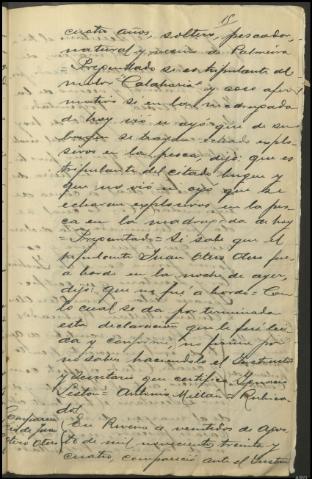 cuatro años, soltero, pescador,
natural y vecino de Palmeira
= Preguntado si es tripulante del
motor "Calaharia" y caso afir-
mativo si en la madrugada
de hoy vió ni oyó que de su
se hayan echado explo-
sivos en la pesca, dijo: que es
tripulante del citado buque y
que no vió ni oyó que se
echaran explosivos en la pes-
ca en la madrugada de hoy
= Preguntado = Si sabe que el
tripulante Juan Otero Otero fue
a bordo en la noche de ayer,
dijo: que no fué a bordo = Con
lo cual se da por terminada
esta declaración que le fué leí-
da y conforme no firma por
no saber haciéndolo el Instructor
y Secretario que certifico. Ygnacio
Lestón = Antonio Millán = Rubrica-
dos
Comparecen-
cia de Juan
Otero Otero
En Riveira a veintidos de Agos-
to de mil novecientos treinta y
cuatro, compareció ante el Instru